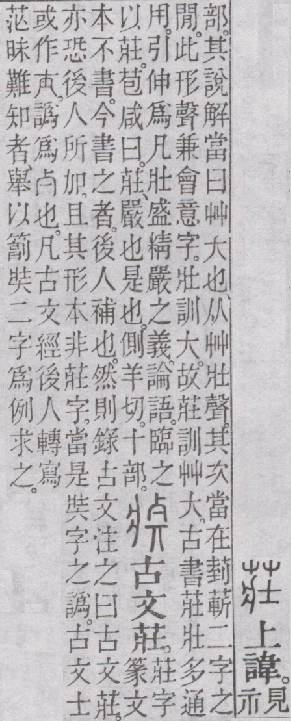 莊上諱。見示
部。其說解當曰艸大也。从艸壯聲。其次當在葑蘄二字之
閒。此形聲兼會意字。壯訓大。故莊訓艸大。古書莊壯多通
用。引伸爲凡壯盛精嚴之義。論語。臨之
以莊。苞咸曰。莊、嚴也。是也。側羊切。十部。
古文莊。莊字篆文
本不書。今書之者。後人補也。然則錄古文注之曰古文莊。
亦恐後人所加。且其形本非莊字。當是奘字之譌。古文士
或作。譌爲也。凡古文經後人轉寫
茫昧難知者。舉以箭奘二字爲例求之。